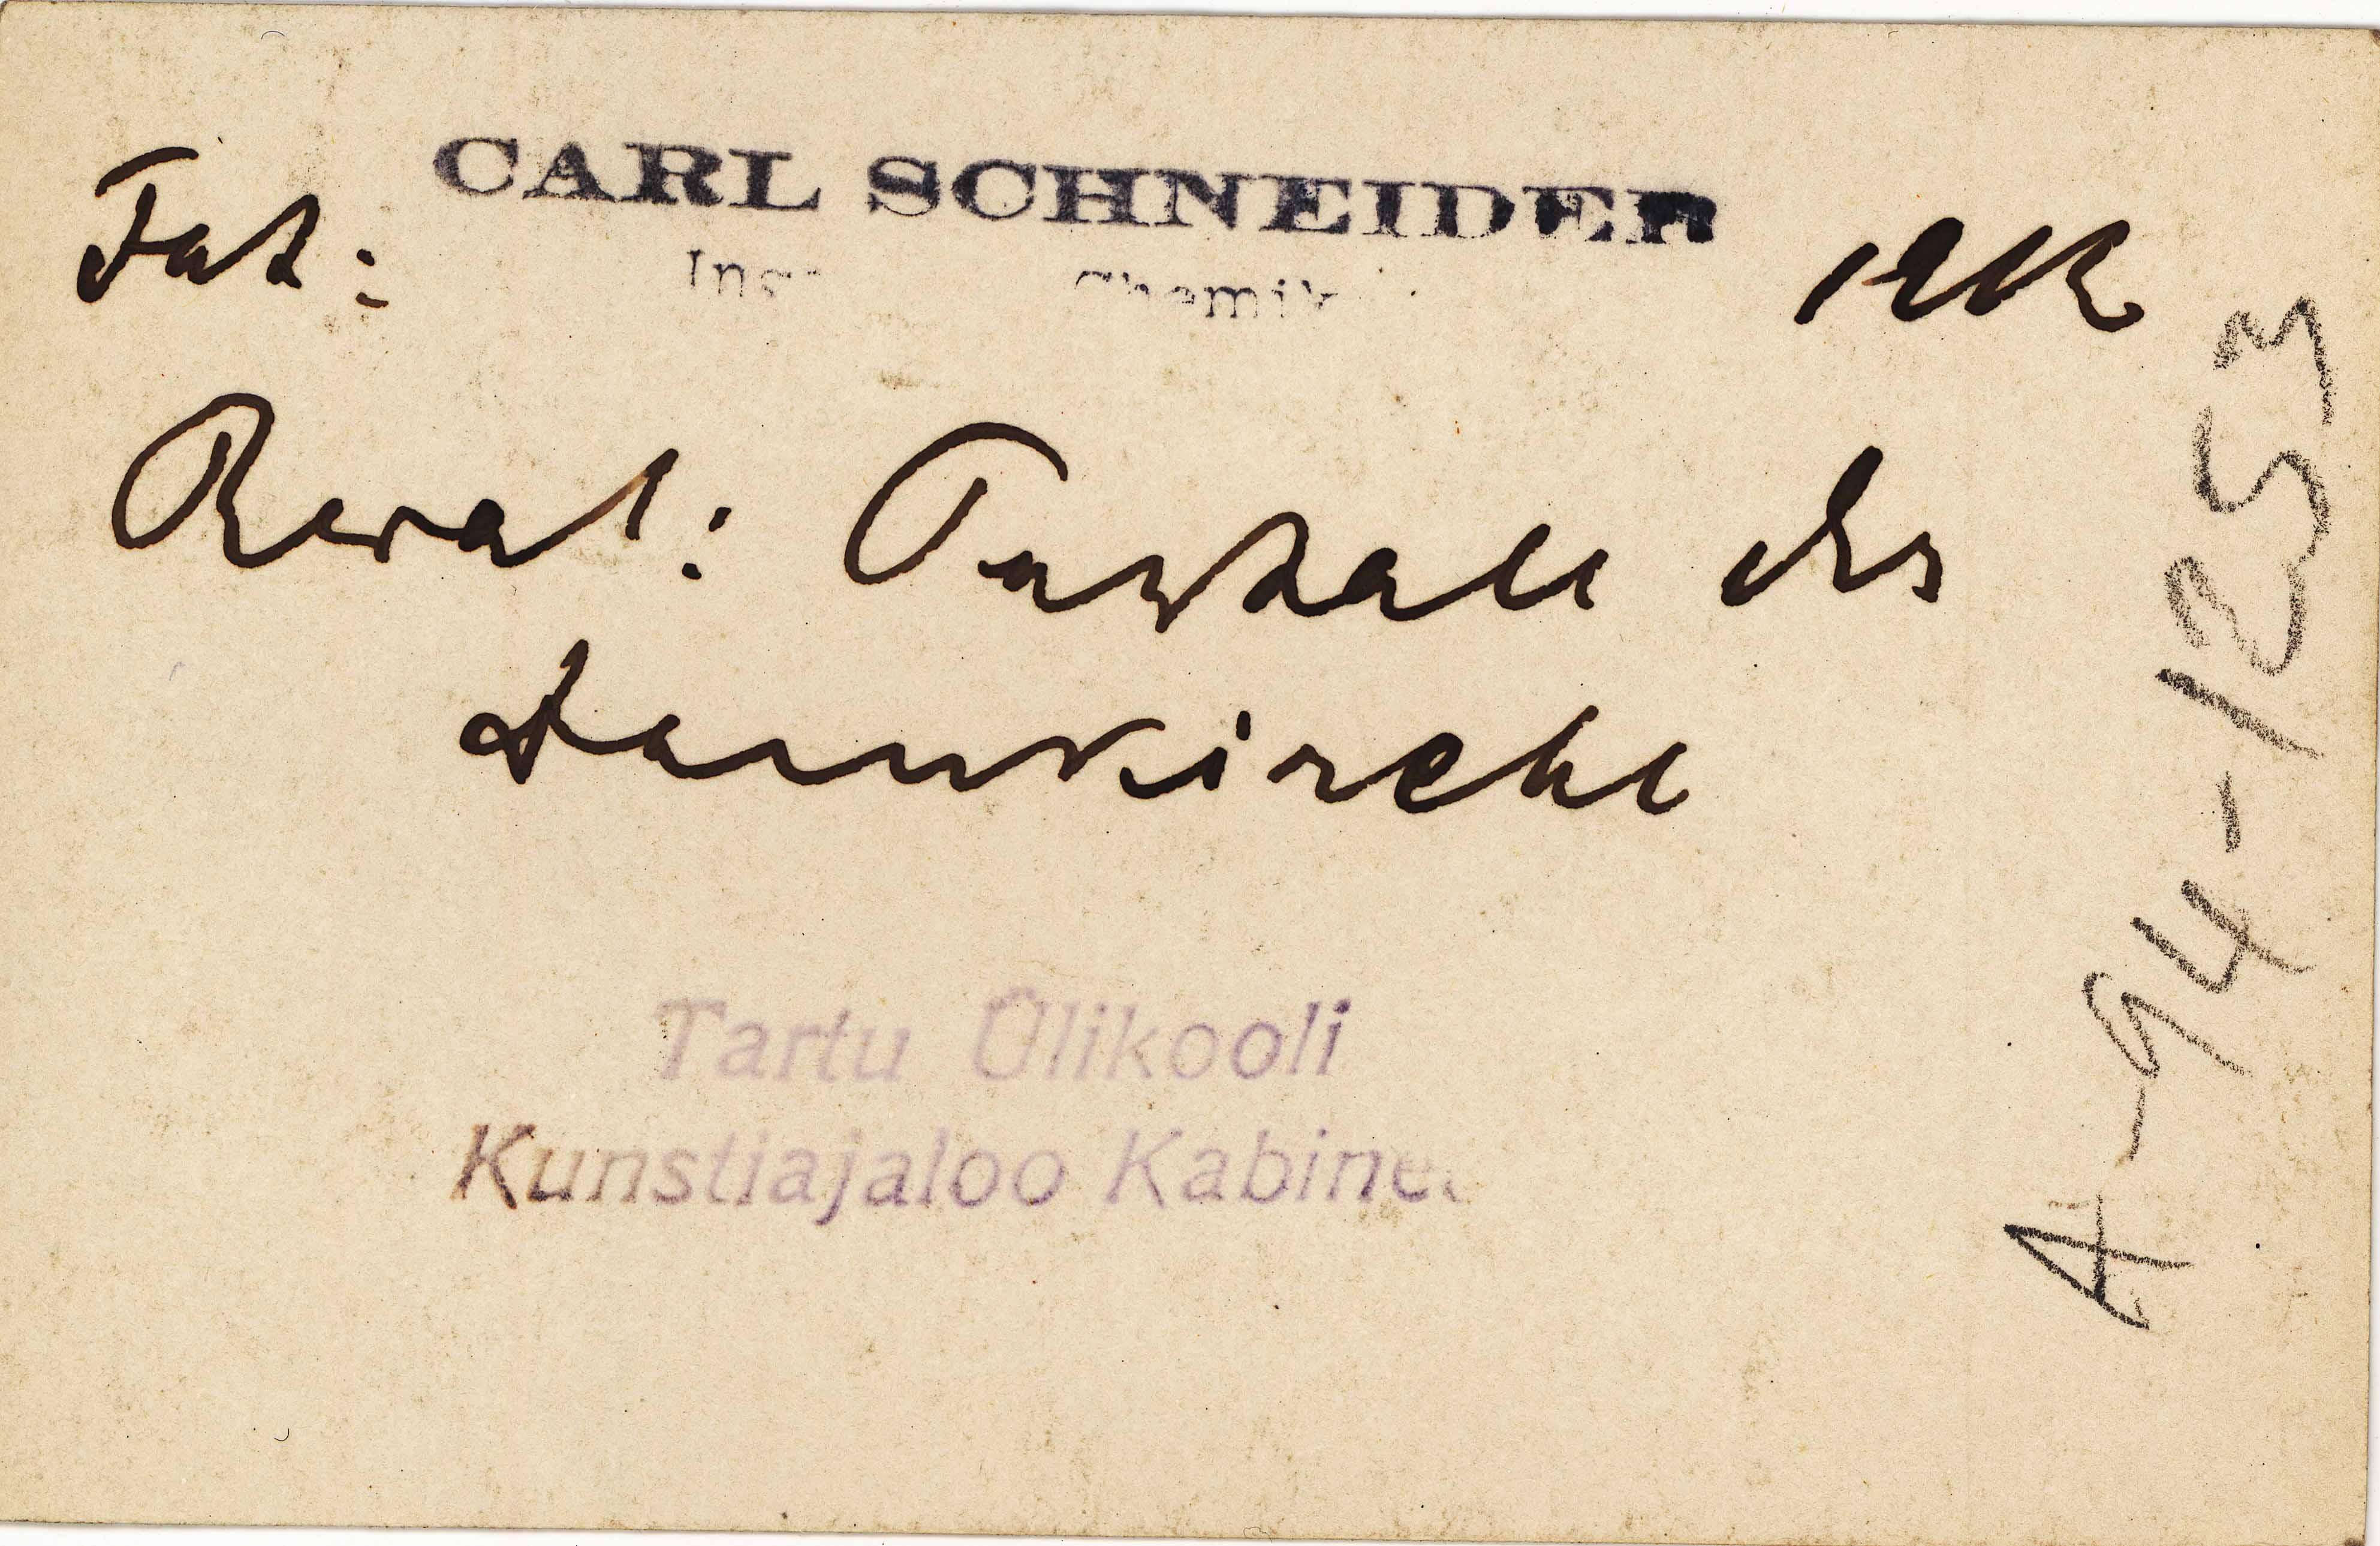 Fot: CARL SCHNEIDER 1912
Reval: Portale der
Domkirche
Tartu Ülikooli
Kunstiajaloo Kabinet
A-94-1253